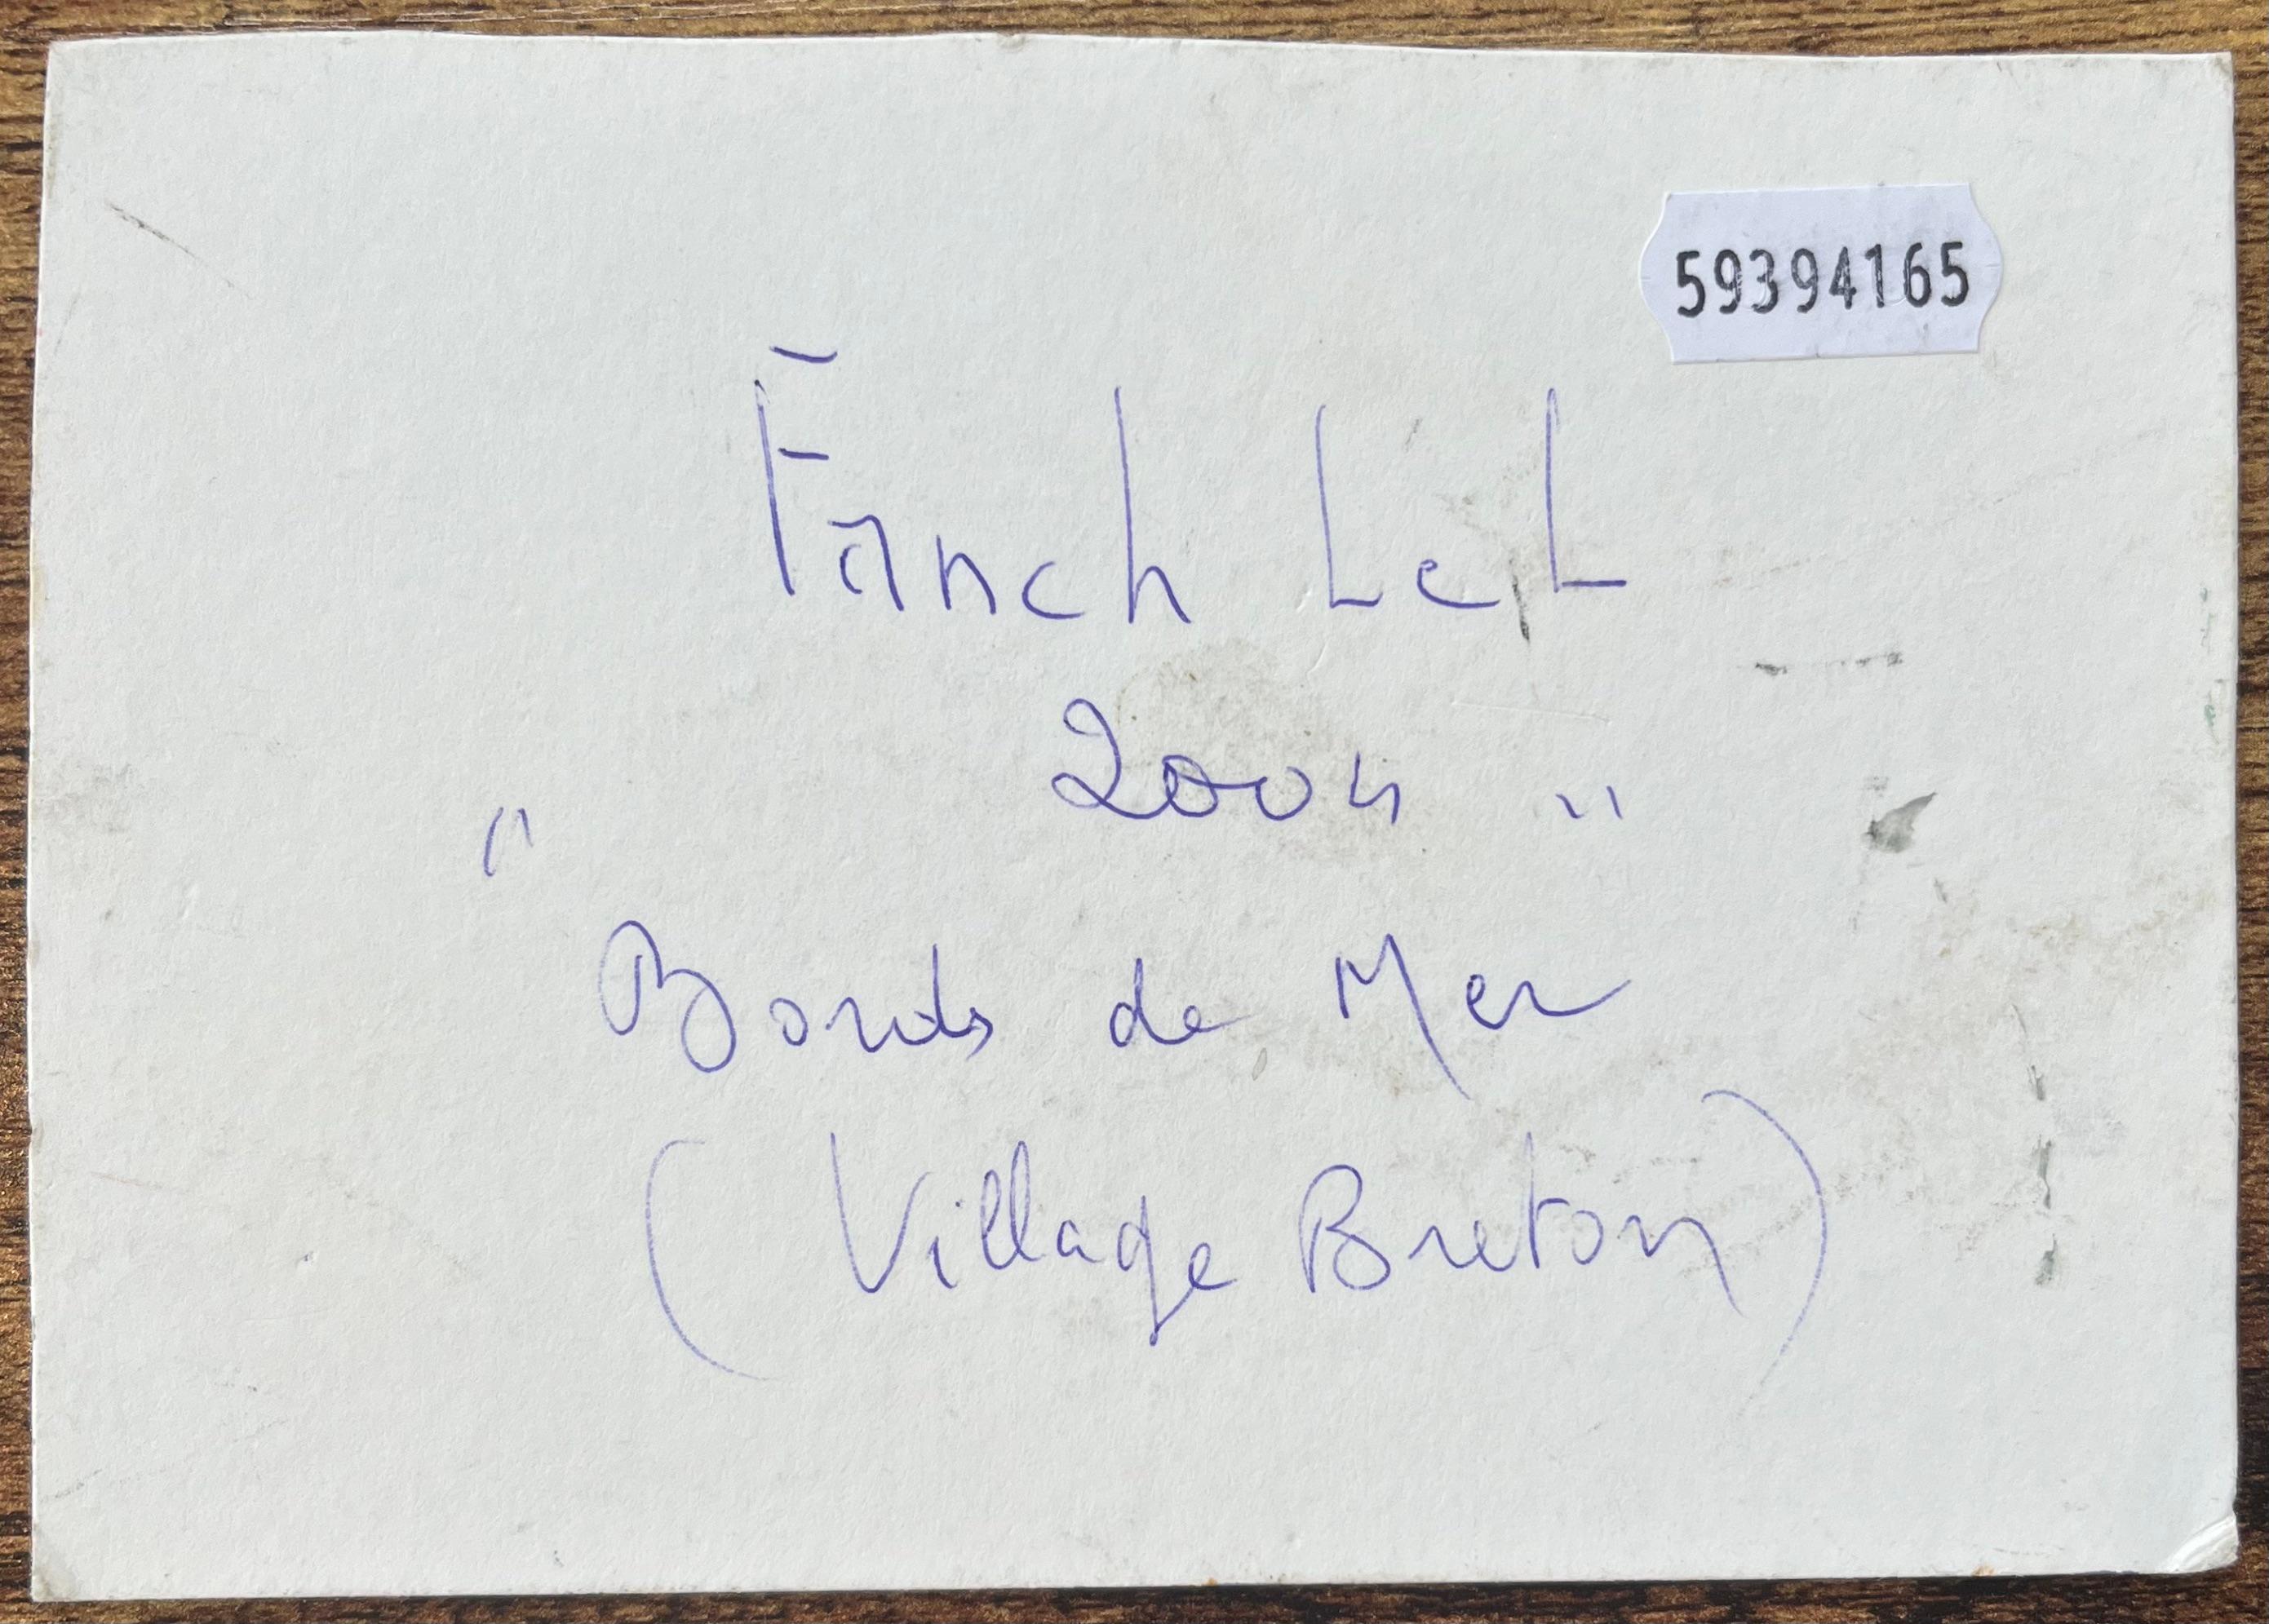 59394165
Fanch Lel
2004
"Bords de Mer"
(Village Breton)